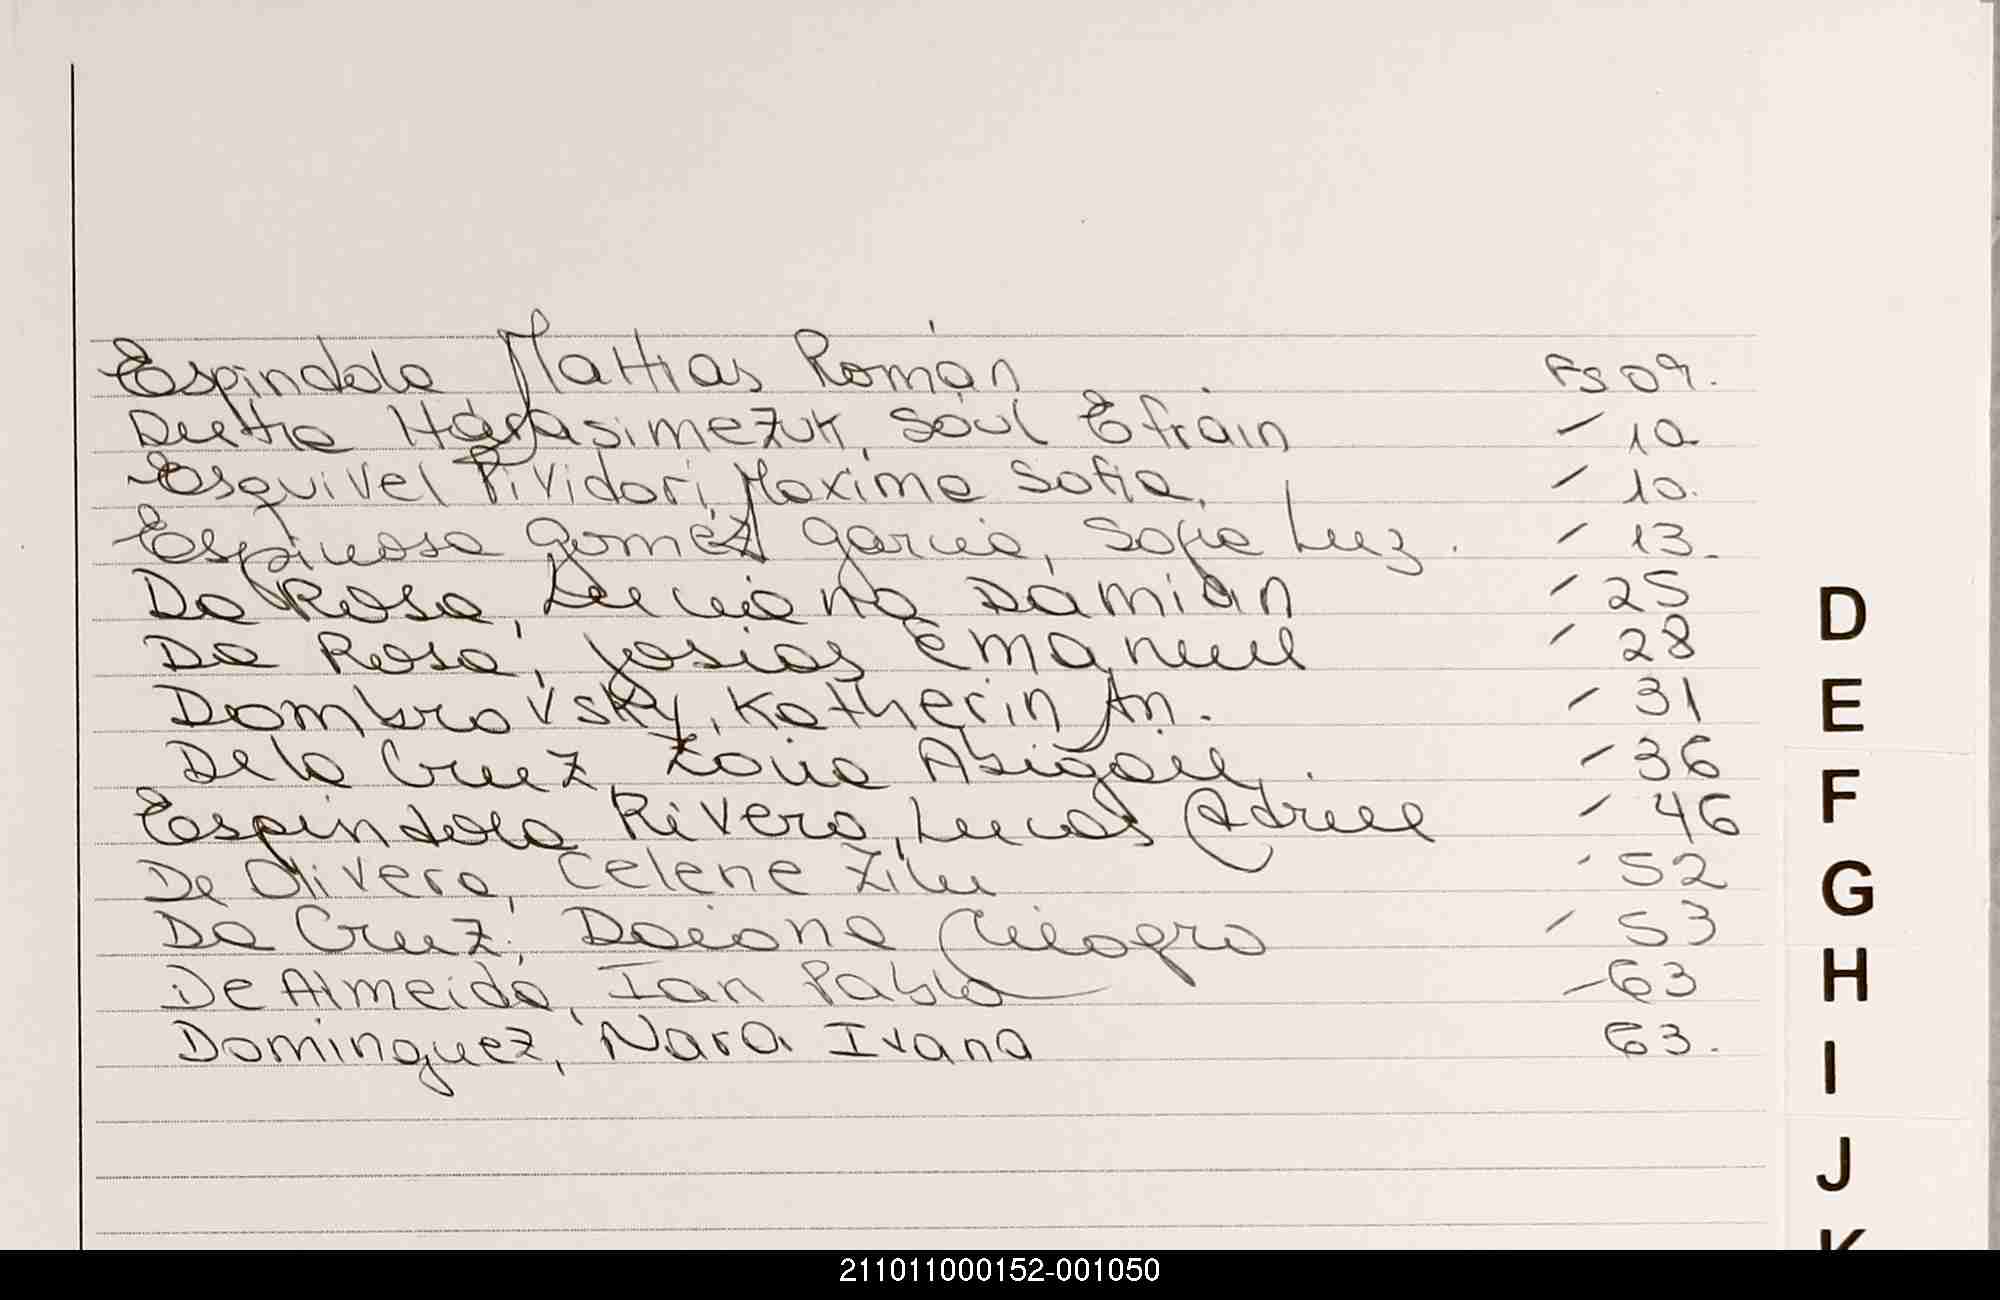 Espindola Mattias Román Fs 09.
Dutra Harasimezuk, Saúl Efrain - 10
Esquivel Pividori, Maxima Sofia, - 10.
Espinosa Gomez Garcia, Sofia Luz. - 13.
Da Rosa, Luciano Damián - 25
Da Rosa, Josias Emanuel - 28
Dombrovsky, Katherin An. - 31
De la Cruz, Zoila Abigail. - 36
Espindola Rivero, Lucas Adriel - 46
De Olivera, Celene - 52
Da Cruz, Daiana Milagro - 53
De Almeida, Ian Pablo - 63
Dominguez, Nara Ivana 63.
D
E
F
G
H
I
J
K
211011000152-001050